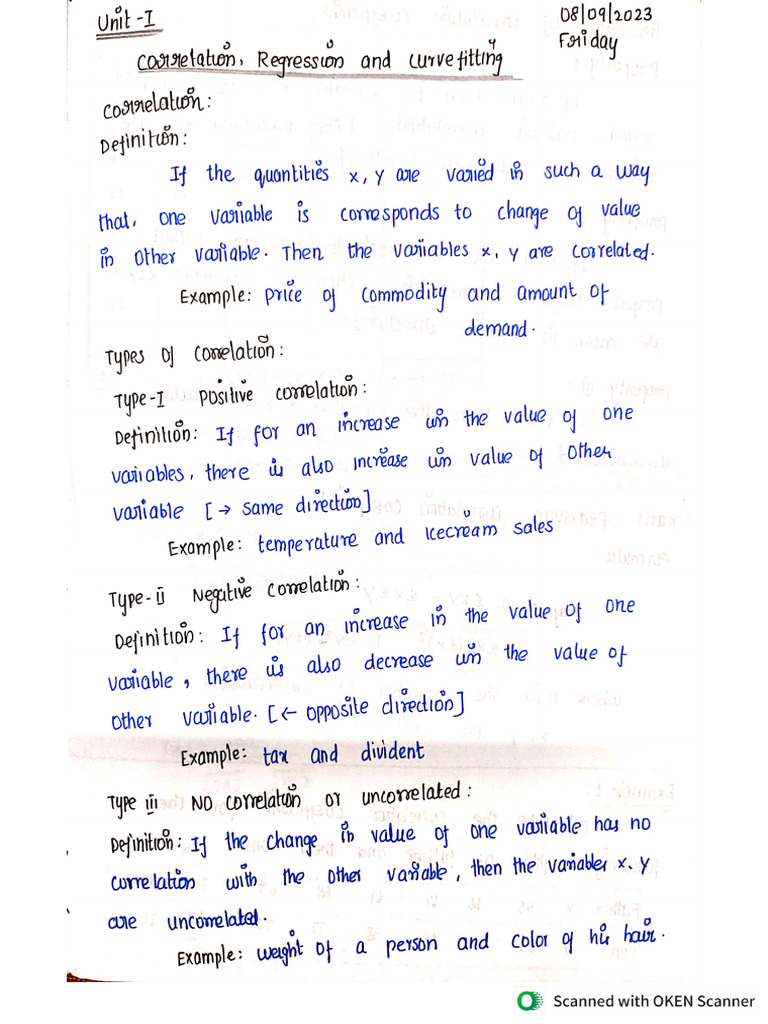 Unit-I
08/09/2023
Friday
Correlation, Regression and curve fitting
Correlation:
Definition:
If the quantities x, y are varied in such a way
that, one variable is corresponds to change of value
in other variable. Then the variables x, y are correlated.
Example: price of commodity and amount of
demand.
Types of correlation:
Type-I Positive correlation:
Definition: If for an increase in the value of one
variables, there is also increase in value of other
variable [→ same direction]
Example: temperature and Icecream sales
Type-ii Negative correlation:
Definition: If for an increase in the value of one
variable, there is also decrease in the value of
other variable. [← opposite direction]
Example: tax and divident
Type iii No correlation or uncorrelated:
Definition: If the change in value of one variable has no
correlation with the other variable, then the variables x, y
are uncorrelated.
Example: weight of a person and color of his hair.
Scanned with OKEN Scanner